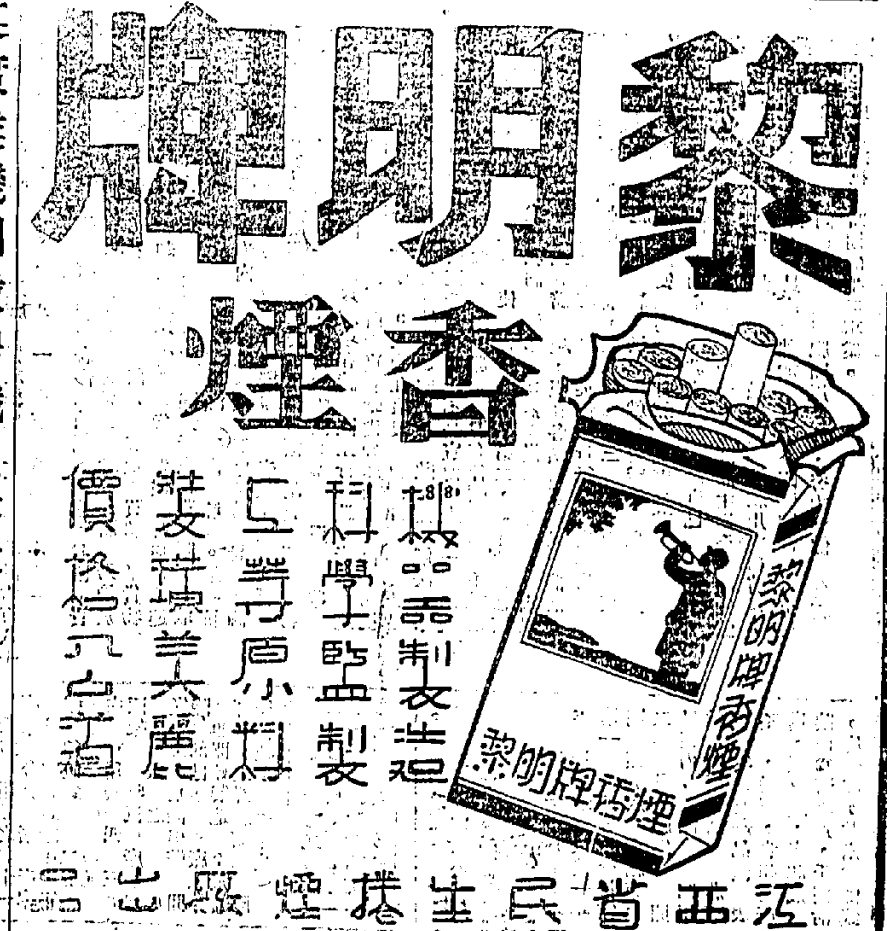 黎明牌
香煙
機器製造
科學監製
上等原料
裝璜美麗
價格公道
黎明牌香煙
黎明牌香煙
江西省民生捲煙廠出品